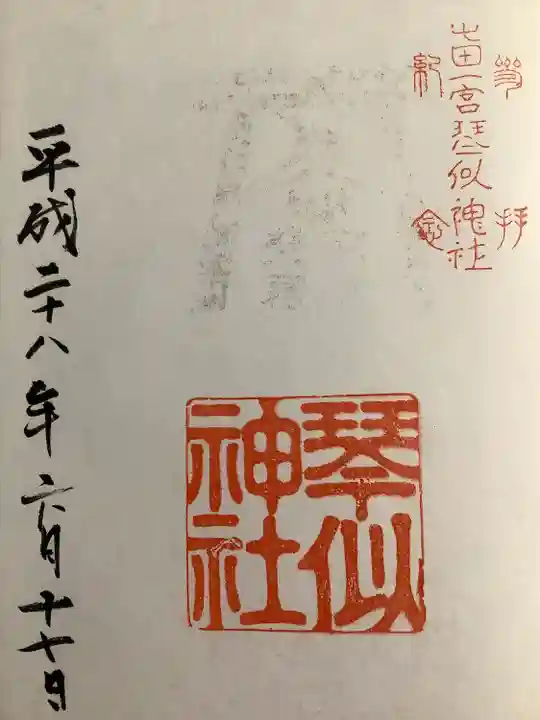 參拝
屯田一宮琴似神社
紀念
琴似
神社
平成二十八年六月十七日